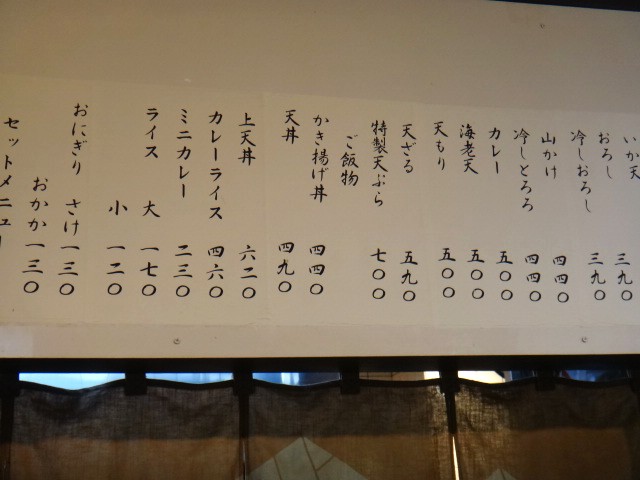 いか天
おろし 三九〇
冷しおろし 三九〇
山かけ 四四〇
冷しとろろ 四四〇
カレー 五〇〇
海老天 五〇〇
天もり 五〇〇
天ざる 五九〇
特製天ぷら 七〇〇
ご飯物
かき揚げ丼 四四〇
天丼 四九〇
上天丼 六二〇
カレーライス 四六〇
ミニカレー 二三〇
ライス 大 一七〇
小 一二〇
おにぎり さけ 一三〇
おかか 一三〇
セットメニュー